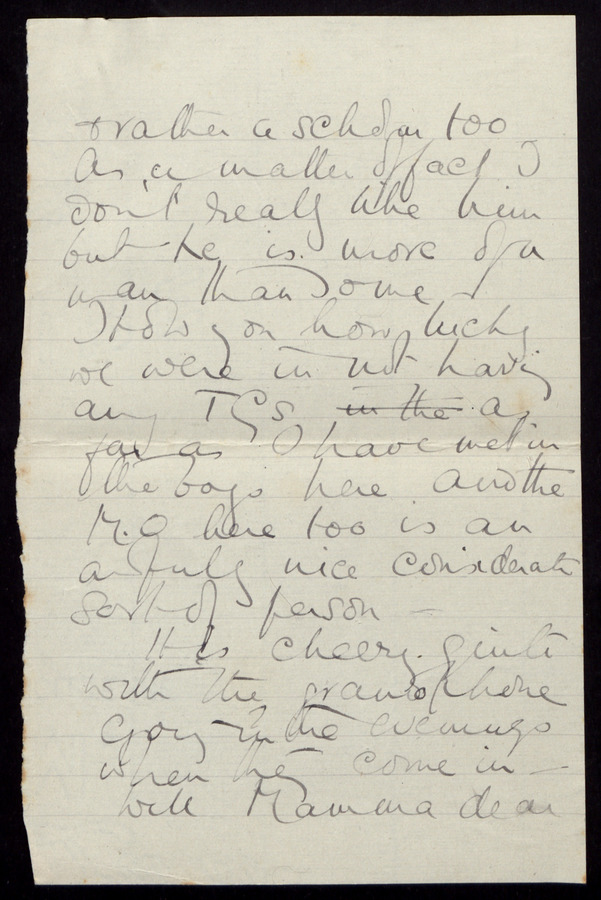 rather a scholar too
As a matter of fact I
don't really like him
but he is more of a
man than some
I told you how lucky
we were in not having
any TGS in the as
far as I have met in
the boys here and the
M.O here too is an
awfully nice considerate
sort of person -
It is cheery quite
with the gramophone
going in the evenings
when they come in -
Well Mamma dear